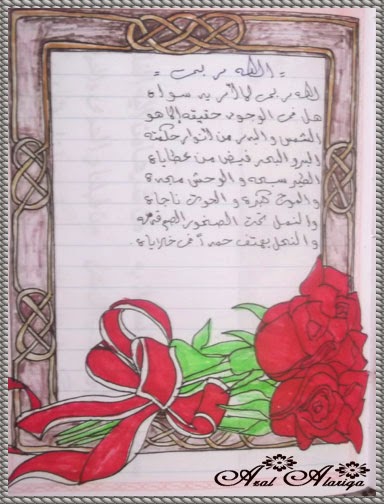 = الله ربي =
الله ربي لا أريد سواه
هل في الوجود حقيقة إلا هو
الشمس والبدر من أنوار حكمته
البر والبحر فيض من عطاياه
الطير سبحه والوحش مجده
والموج كبره والحوت ناجاه
والنمل تحت الصخور الصم قدسه
والنحل يهتف حمدا في خلاياه
Azal Alariqa